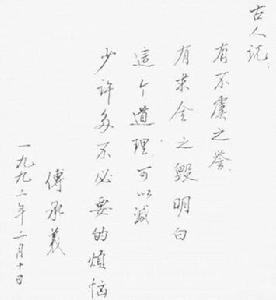 古人说
有不虞之誉
有求全之毁明白
這个道理可以减
少许多不必要的煩恼
傅承義
一九九二年二月十日